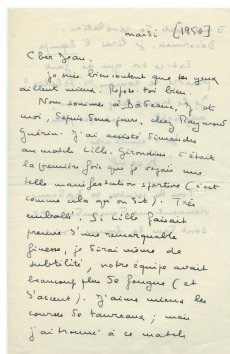 mardi [1950]
Cher Jean.
Je suis bien content que tes yeux
aillent mieux. Repose-toi bien.
Nous sommes à La Seam, J. et
moi, depuis deux jours, chez Raymond
Guérin. J'ai assisté dimanche
au match Lille. Girondins. c'était
la première fois que je voyais une
telle manifestation sportive (c'est
comme cela qu'on dit). Très
emballé. Si Lille faisait
preuve d'une remarquable
finesse, je dirai même de
subtilité, notre équipe avait
beaucoup plus de fougue (et
d'accent). J'aime mieux les
courses de taureaux ; mais
j'ai trouvé à ce match